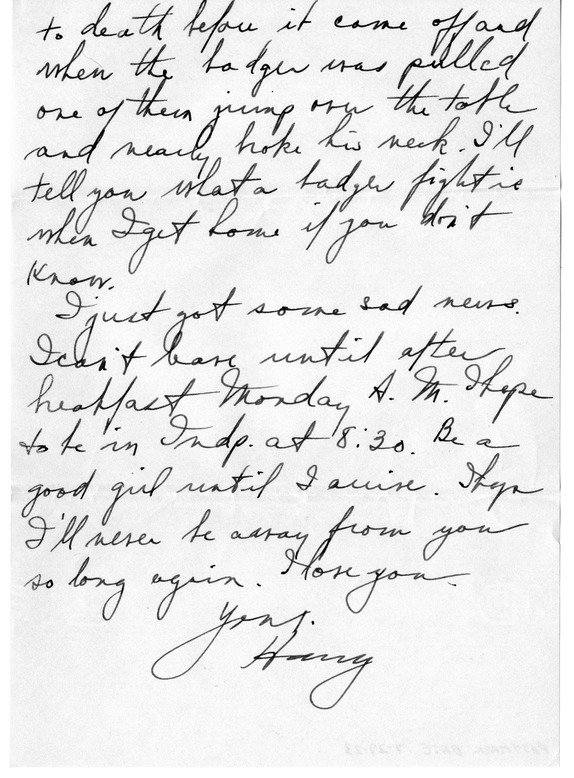 to death before it came off and
when the badger was pulled
one of them jump over the table
and nearly broke his neck. I'll
tell you what a badger fight is
when I get home if you don't
know.
I just got some sad news.
I can't leave until after
breakfast Monday A.M. I hope
to be in Indp. at 8:30. Be a
good girl until I arrive. I hope
I'll never be away from you
so long again. I love you.
Yours.
Harry